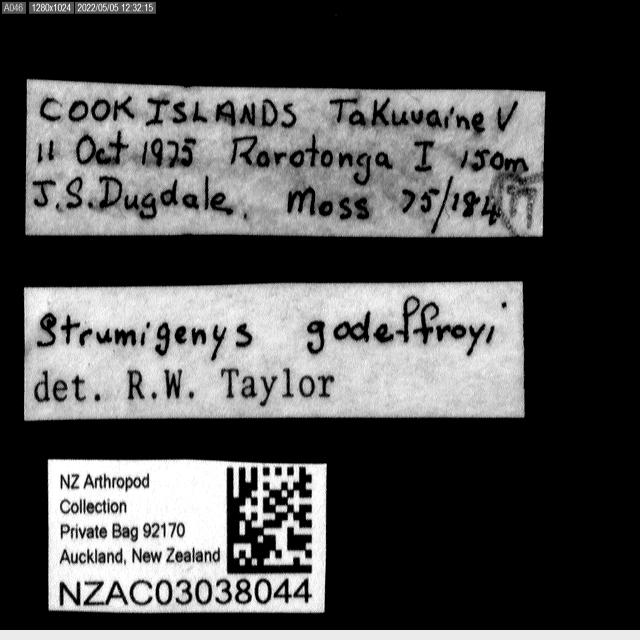 A046 1280x1024 2022/05/05 12:32:15
COOK ISLANDS Takuvaine V
11 Oct 1975 Rarotonga I 150m
J.S. Dugdale. Moss 75/184
Strumigenys godeffroyi
det. R.W. Taylor
NZ Arthropod
Collection
Private Bag 92170
Auckland, New Zealand
NZAC03038044